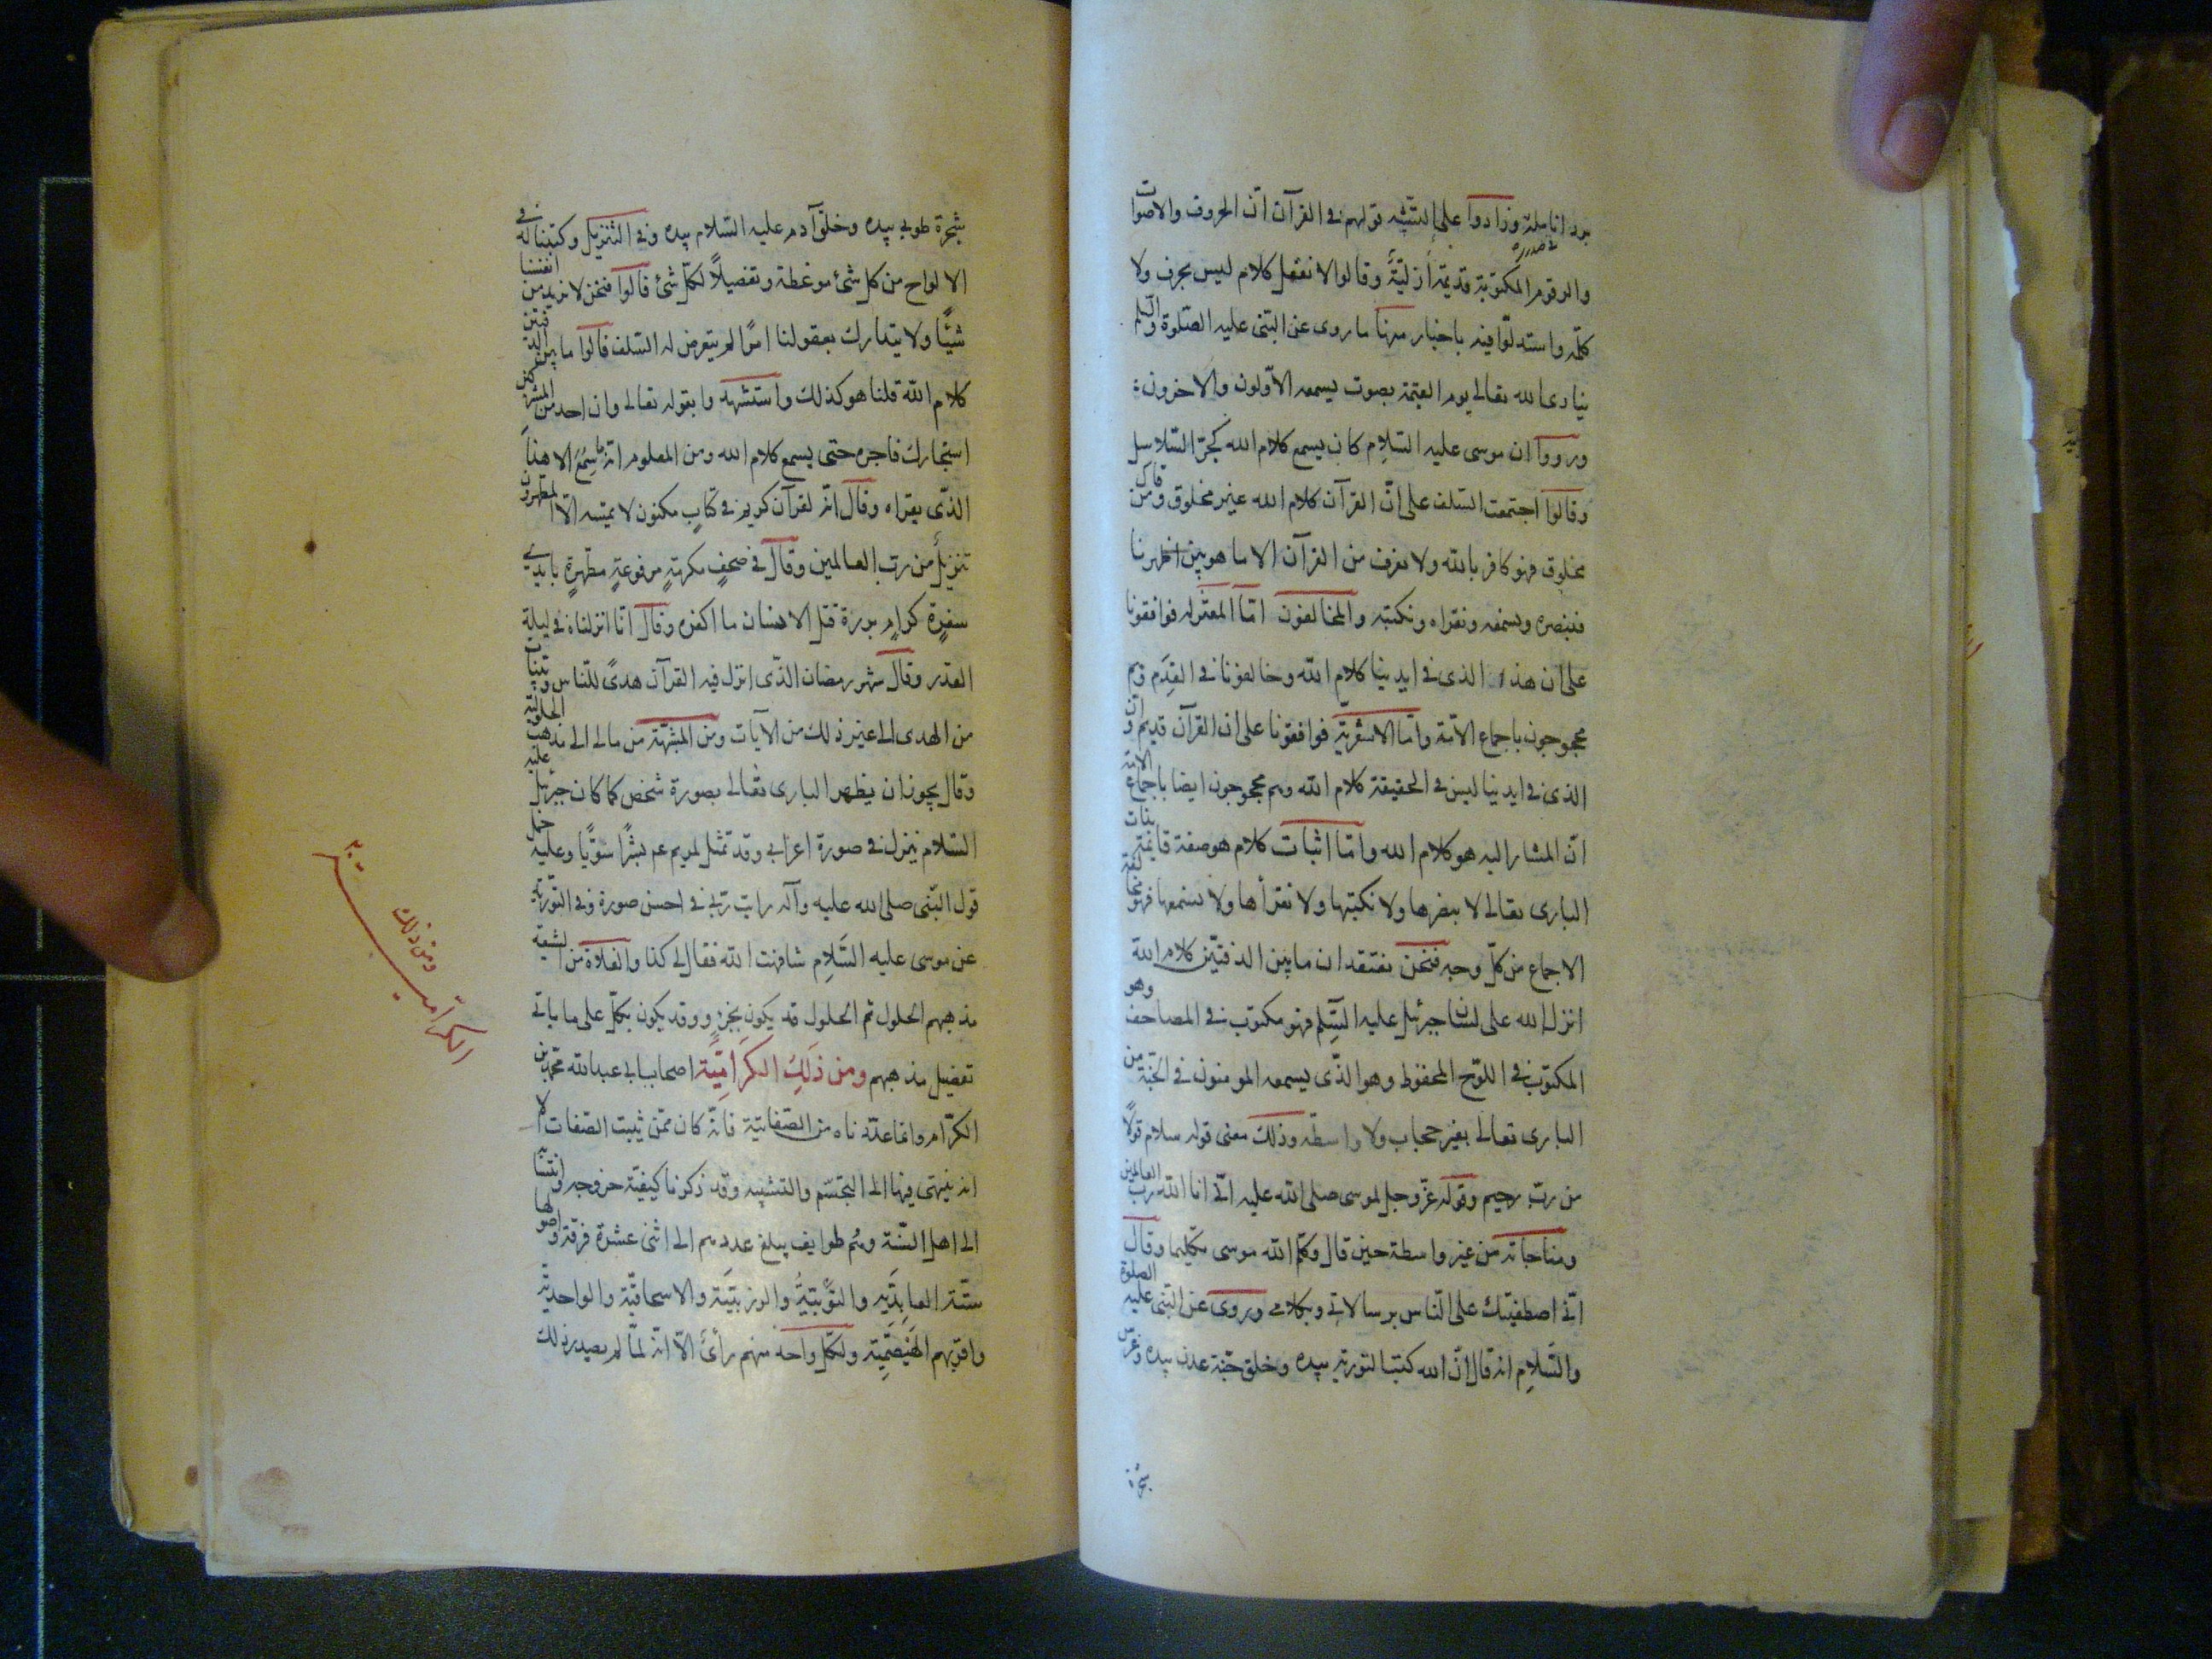 برد انامله وزادوا على التشبيه قولهم في القرآن انّ الحروف والاصوات
والرقوم المكتوبة قديمة أزليّة وقالوا لا نعقل كلام ليس بحرف ولا
كلمه واستدلّوا فيه باخبار منها ما روى عن النبى عليه الصلوة والسلم
ينادى الله تعالى يوم القيمة بصوت يسمعه الاوّلون والاخرون
ورووا ان موسى عليه السّلام كان يسمع كلام الله كجرّ السّلاسل
وقالوا اجتمعت السّلف على انّ القرآن كلام الله غير مخلوق ومن قال
مخلوق فهو كافر بالله ولا نعرف من القرآن الا ما هو بين اظهرنا
فنبصره ونسمعه ونقراه ونكتبه والمخالفون امّا المعتزله فوافقونا
على ان هذا الذى في ايدينا كلام الله وخالفونا في القِدَم وهم
محجوجون باجماع الامّة وامّا الاشعريّة فوافقونا على ان القرآن قديم وان
الذى في ايدينا ليس في الحقيقة كلام الله وهم محجوجون ايضا باجماع الامّة
انّ المشار اليه هو كلام الله وامّا اثبات كلام هو صفة قايمة بذات
البارى تعالى لا نبصرها ولا نكتبها ولا نقرأها ولا نسمعها فهو مخالفة
الاجماع من كلّ وجه فنحن نعتقد ان ما بين الدفتين كلام الله
انزل الله على لسان جبرئيل عليه السّلم فهو مكتوب في المصاحف وهو
المكتوب في اللوح المحفوظ وهو الذّى يسمعه المومنون في الجنّة من
البارى تعالى بغير حجاب ولا واسطه وذلك معنى قوله سلام قولاً
من ربّ رحيم وقوله عزّ وجل لموسى صلى الله عليه انّى انا الله ربّ العالمين
ومناجاته من غير واسطة حين قال وكلّم الله موسى تكليما وقال
انّى اصطفيتك على النّاس برسالاتى وبكلامى وروى عن النّبى عليه الصلوة
والسّلام انه قال انّ الله كتب التورية بيده وخلق جنّة عدن بيده وغرس
شجرة
شجرة طوبى بيده وخلق آدم عليه السّلام بيده وفى التّنزيل وكتبنا له في
الالواح من كل شئ موعظة وتفصيلاً لكلّ شئ قالوا فنحن لا نزيد من انفسنا
شيئًا ولا يتدارك بعقولنا امرًا لم يتعرض له السّلف قالوا ما بين الدفتين
كلام الله قلنا هو كذلك واستشهدوا بقوله تعالى وان احد من المشركين
استجارك فاجره حتى يسمع كلام الله ومن المعلوم انه ما سمع الا هذا
الذّى يقراه وقال انّه لقرآن كريم في كتاب مكنون لا يمسّه الّا المطهرون
تنزيلٌ من ربّ العالمين وقال في صحفٍ مكرمةٍ مرفوعةٍ مطهرةٍ بايدي
سفرةٍ كرامٍ بررة قتل الانسان ما اكفره وقال انّا انزلناه في ليلة
القدر وقال شهر رمضان الذّى انزل فيه القرآن هدىً للنّاس وبينات
من الهدى الى غير ذلك من الآيات ومن المشبهة من مال الى مذهب الحلولية
وقال يجوز ان يظهر البارى تعالى بصورة شخص كما كان جبرئيل عليه
السّلام ينزل في صورة اعرابى وقد تمثل لمريم عم بشرًا سويًّا وعليه حمل
قول النّبى صلى الله عليه وآله رايت ربّى في احسن صورة وفى التّورية
عن موسى عليه السّلام شافهت الله فقال لى كذا والغلاة من الشيعة
مذهبهم الحلول ثم الحلول قد يكون بجزءٍ وقد يكون بكلّ على ما ياتى
تفصيل مذهبهم ومن ذلك الكرّاميّة اصحاب ابى عبد الله محمّد بن
الكرّام وانّما عدّدناه من الصّفاتيّة فانّه كان ممّن يثبت الصّفات الا
انه ينتهى فيها الى التجسّم والتشبيه وقد ذكرنا كيفيّة خروجه وانتسابه
الى اهل السّنة وهم طوايف يبلغ عددهم الى اثنى عشرة فرقة واصولها
ستّة العابديّه والتّونيّة والزرينيّة والاسحاقيّة والواحديّة
واقربهم الهيصميّة ولكلّ واحد منهم رأىٌ الّا انّه لمّا لم يصدر ذلك
ومن ذلك
الكراميـــــة